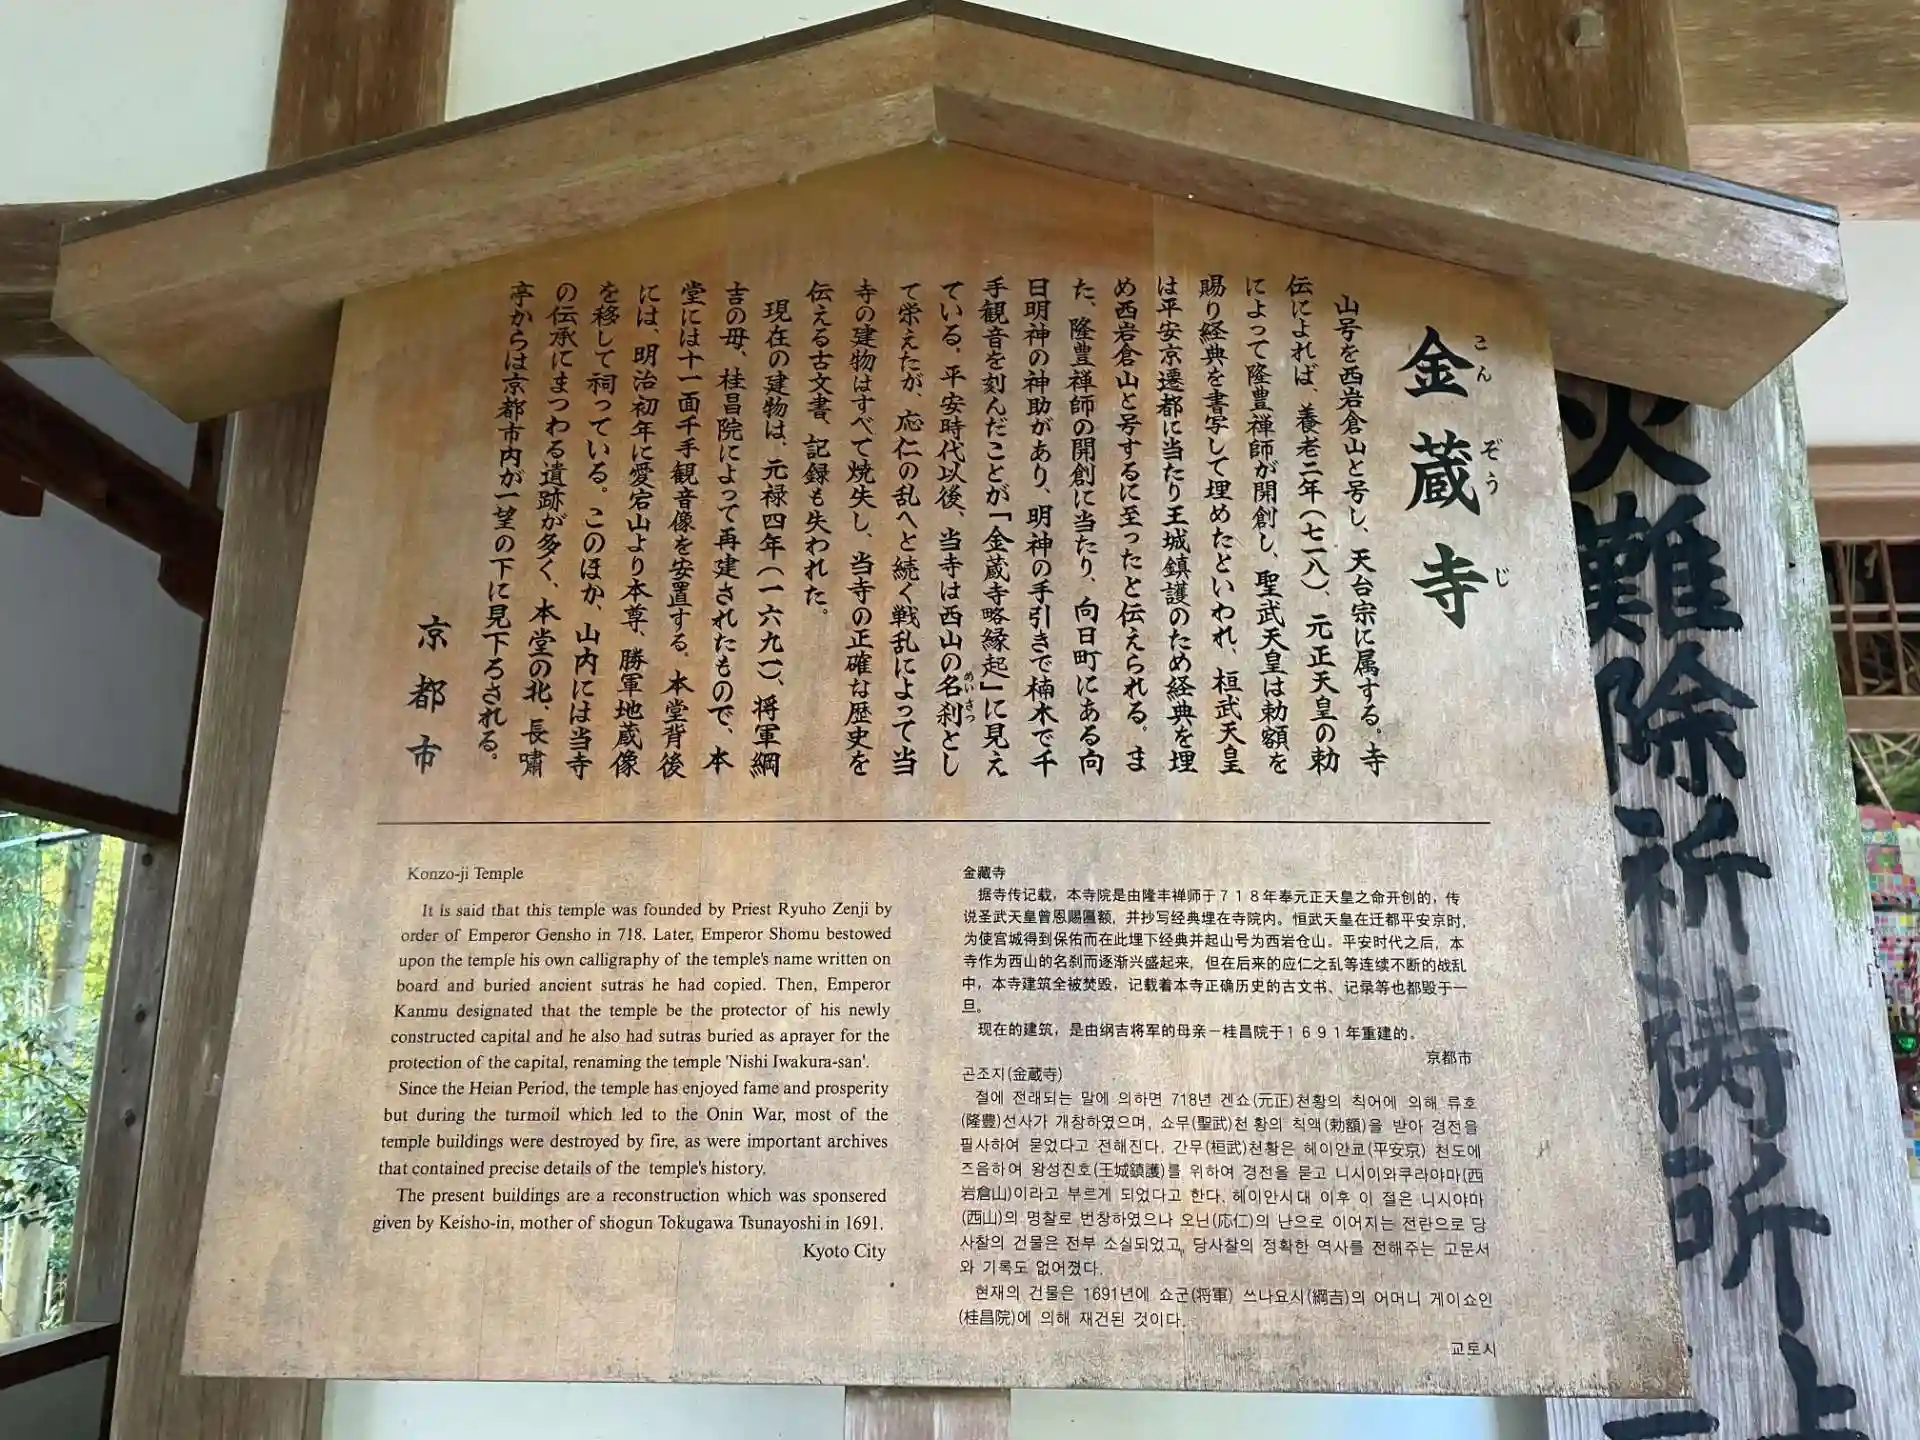 金蔵寺
こんぞうじ
山号を西岩倉山と号し、天台宗に属する。寺
伝によれば、養老二年（七一八）、元正天皇の勅
によって隆豊禅師が開創し、聖武天皇は勅額を
賜り経典を書写して埋めたといわれ、桓武天皇
は平安京遷都に当たり王城鎮護のため経典を埋
め西岩倉山と号するに至ったと伝えられる。ま
た、隆豊禅師の開創に当たり、向日町にある向
日明神の神助があり、明神の手引きで楠木で千
手観音を刻んだことが「金蔵寺略縁起」に見え
ている。平安時代以後、当寺は西山の名刹とし
めいさつ
て栄えたが、応仁の乱へと続く戦乱によって当
寺の建物はすべて焼失し、当寺の正確な歴史を
伝える古文書、記録も失われた。
現在の建物は、元禄四年（一六九一）、将軍綱
吉の母、桂昌院によって再建されたもので、本
堂には十一面千手観音像を安置する。本堂背後
には、明治初年に愛宕山より本尊、勝軍地蔵像
を移して祠っている。このほか、山内には当寺
の伝承にまつわる遺跡が多く、本堂の北、長嘯
亭からは京都市内が一望の下に見下ろされる。
京都市
Konzo-ji Temple
It is said that this temple was founded by Priest Ryuho Zenji by
order of Emperor Gensho in 718. Later, Emperor Shomu bestowed
upon the temple his own calligraphy of the temple's name written on
board and buried ancient sutras he had copied. Then, Emperor
Kanmu designated that the temple be the protector of his newly
constructed capital and he also had sutras buried as aprayer for the
protection of the capital, renaming the temple 'Nishi Iwakura-san'.
Since the Heian Period, the temple has enjoyed fame and prosperity
but during the turmoil which led to the Onin War, most of the
temple buildings were destroyed by fire, as were important archives
that contained precise details of the temple's history.
The present buildings are a reconstruction which was sponsered
given by Keisho-in, mother of shogun Tokugawa Tsunayoshi in 1691.
Kyoto City
金藏寺
据寺传记载，本寺院是由隆丰禅师于７１８年奉元正天皇之命开创的，传
说圣武天皇曾恩赐匾额，并抄写经典埋在寺院内。恒武天皇在迁都平安京时，
为使宫城得到保佑而在此埋下经典并起山号为西岩仓山。平安时代之后，本
寺作为西山的名刹而逐渐兴盛起来，但在后来的应仁之乱等连续不断的战乱
中，本寺建筑全被焚毁，记载着本寺正确历史的古文书、记录等也都毁于一
旦。
现在的建筑，是由纲吉将军的母亲－桂昌院于１６９１年重建的。
京都市
곤조지(金蔵寺)
절에 전래되는 말에 의하면 718년 겐쇼(元正)천황의 칙어에 의해 류호
(隆豊)선사가 개창하였으며, 쇼무(聖武)천황의 칙액(勅額)을 받아 경전을
필사하여 묻었다고 전해진다. 간무(桓武)천황은 헤이안쿄(平安京) 천도에
즈음하여 왕성진호(王城鎮護)를 위하여 경전을 묻고 니시이와쿠라야마(西
岩倉山)이라고 부르게 되었다고 한다. 헤이안시대 이후 이 절은 니시야마
(西山)의 명찰로 번창하였으나 오닌(応仁)의 난으로 이어지는 전란으로 당
사찰의 건물은 전부 소실되었고, 당사찰의 정확한 역사를 전해주는 고문서
와 기록도 없어졌다.
현재의 건물은 1691년에 쇼군(将軍) 쓰나요시(綱吉)의 어머니 게이쇼인
(桂昌院)에 의해 재건된 것이다.
교토시
火難除祈祷所